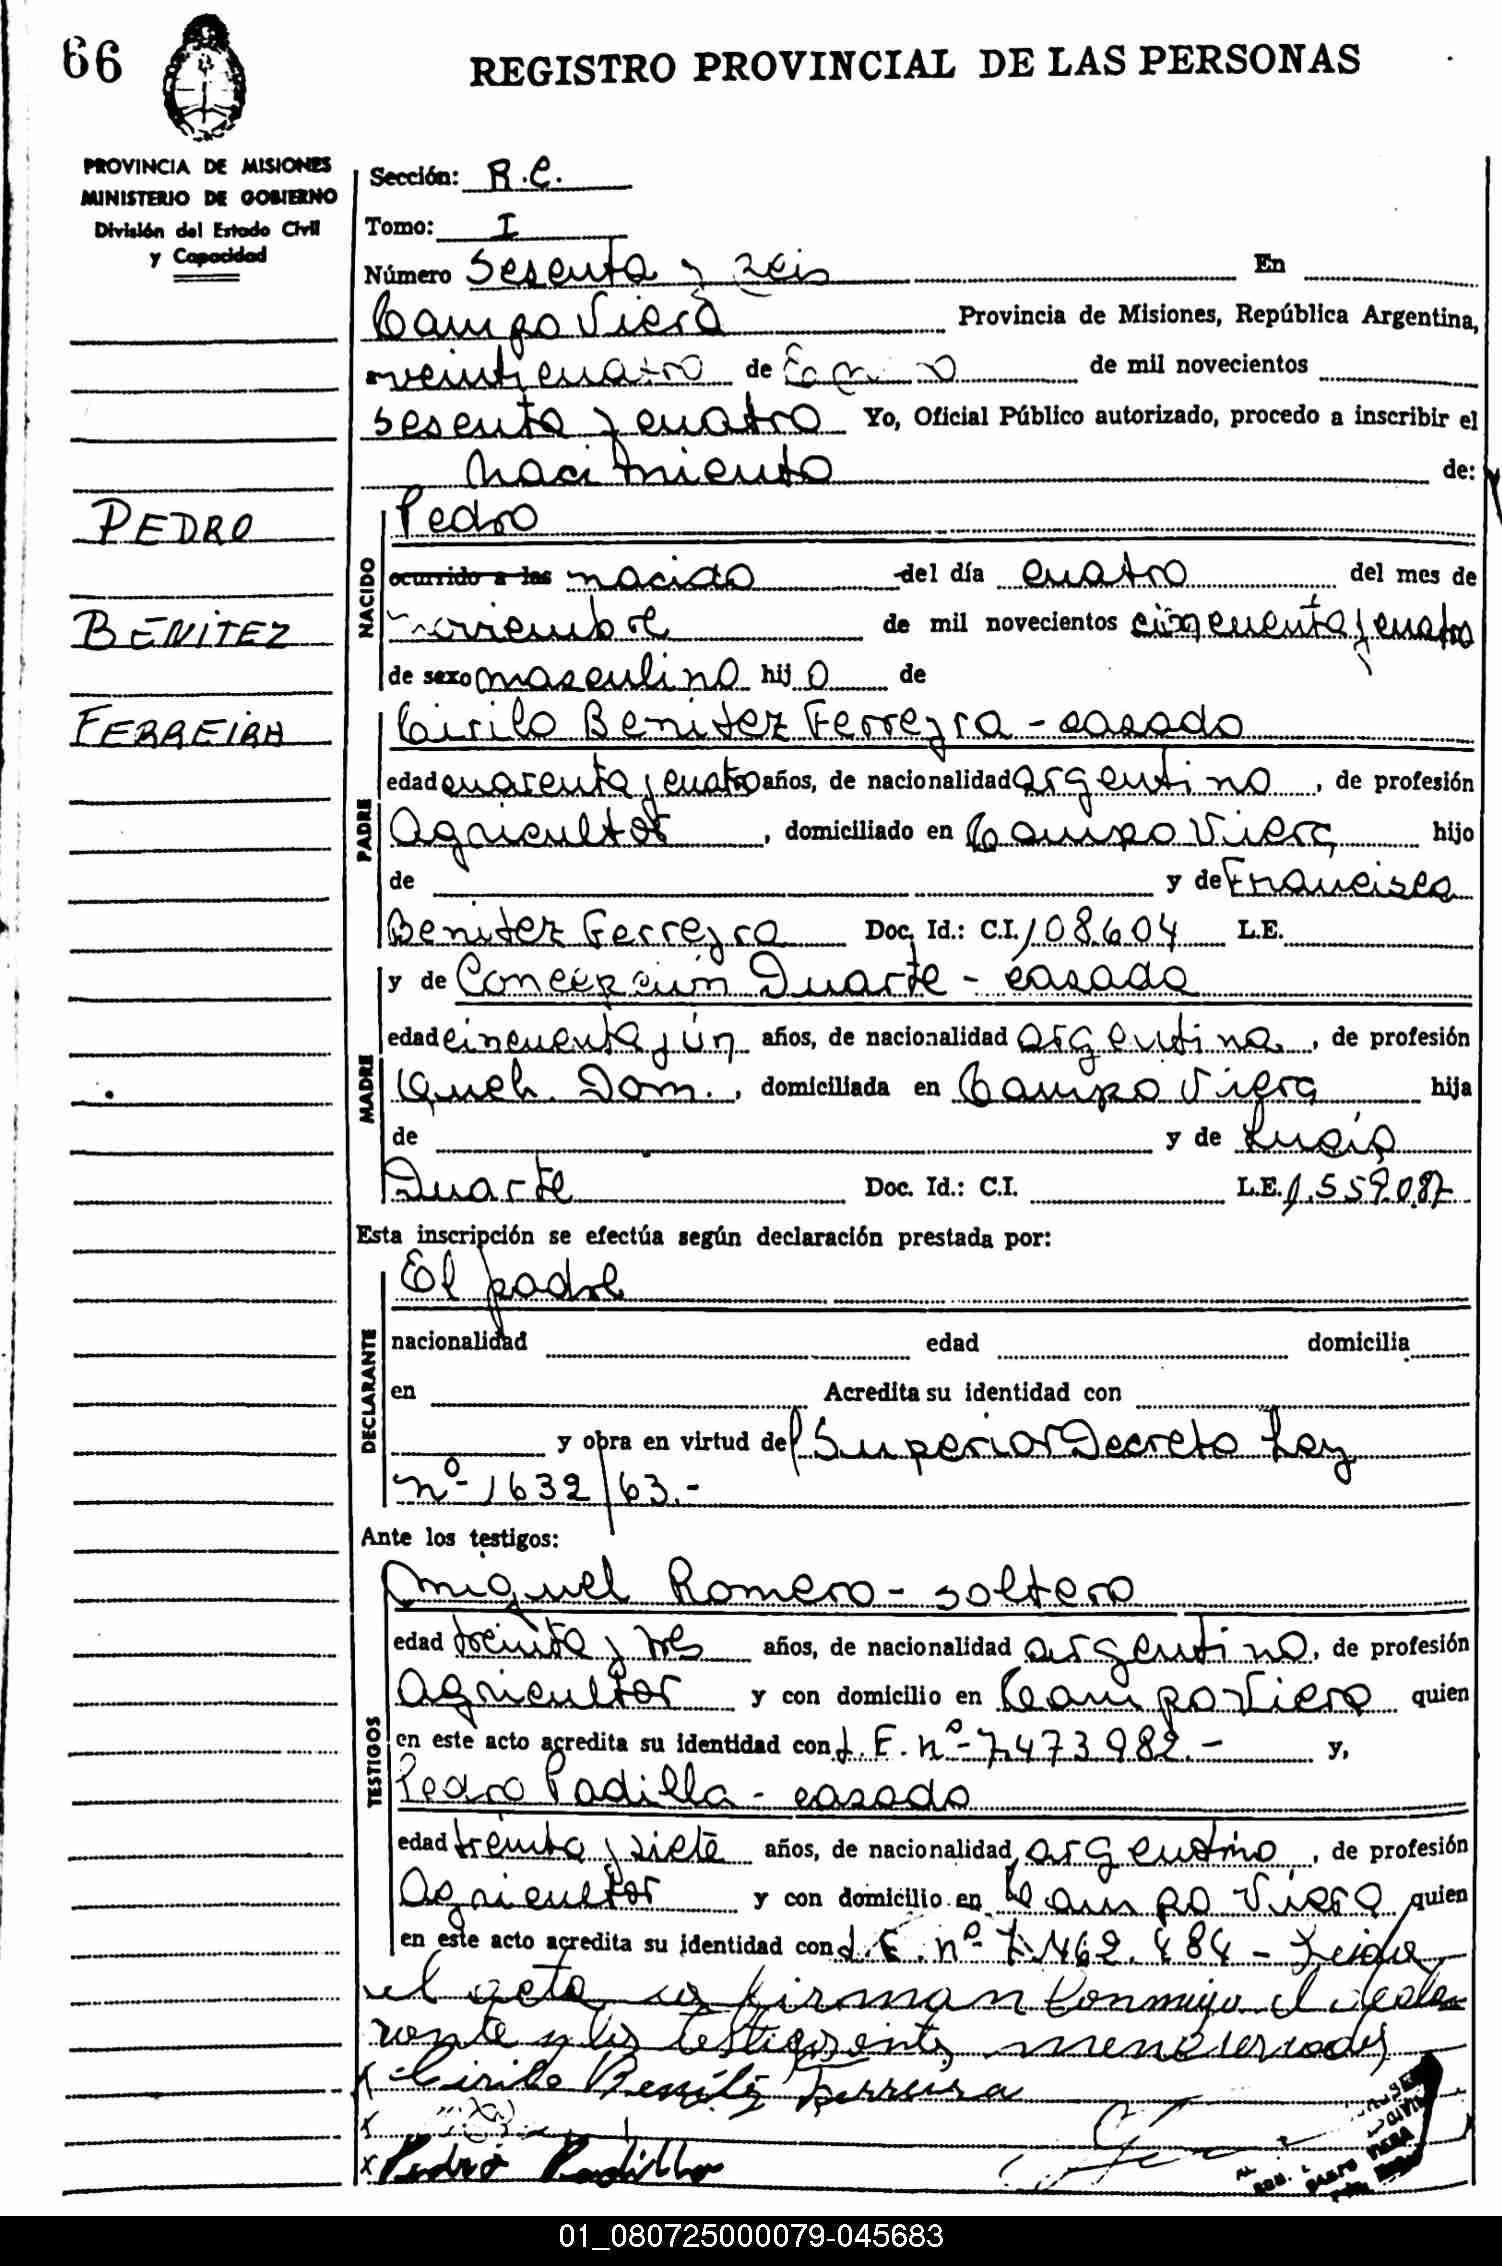 66
REGISTRO PROVINCIAL DE LAS PERSONAS
PROVINCIA DE MISIONES
MINISTERIO DE GOBIERNO
División del Estado Civil
y Capacidad
Sección: R.C.
Tomo: I
Número Sesenta y seis En
Campo Viera Provincia de Misiones, República Argentina,
veinticuatro de de mil novecientos
sesenta y cuatro Yo, Oficial Público autorizado, procedo a inscribir el
nacimiento de:
PEDRO
BENITEZ
FERREIRA
NACIDO
Pedro
ocurrido a las nacido del día cuatro del mes de
noviembre de mil novecientos cincuenta y cuatro
de sexo masculino hijo de
PADRE
Cirilo Benitez Ferreyra - casado
edad cuarenta y cuatro años, de nacionalidad argentino, de profesión
Agricultor, domiciliado en Campo Viera hijo
de y de Francisca
Benitez Ferreyra Doc. Id.: C.I. 108.604 L.E.
MADRE
y de Concepción Duarte - casada
edad cincuenta y ún años, de nacionalidad argentina, de profesión
Queh. Dom., domiciliada en Campo Viera hija
de y de Lucía
Duarte Doc. Id.: C.I. L.E. 1.559.087
Esta inscripción se efectúa según declaración prestada por:
DECLARANTE
El padre
nacionalidad edad domicilia
en Acredita su identidad con
y obra en virtud del Superior Decreto Ley
nº 1632/63.-
Ante los testigos:
TESTIGOS
Miguel Romero - soltero
edad treinta y tres años, de nacionalidad argentino, de profesión
Agricultor y con domicilio en Campo Viera quien
en este acto acredita su identidad con L.E. nº 7.473.982.- y,
Pedro Padilla - casado
edad treinta y siete años, de nacionalidad argentino, de profesión
Agricultor y con domicilio en Campo Viera quien
en este acto acredita su identidad con L.E. nº 7.462.484 - Leida
el acta la firman conmigo el decla-
rante y los testigos mencionados
x Cirilo Benítez Ferreira
x
x Pedro Padilla
CAMPO VIERA
01_080725000079-045683